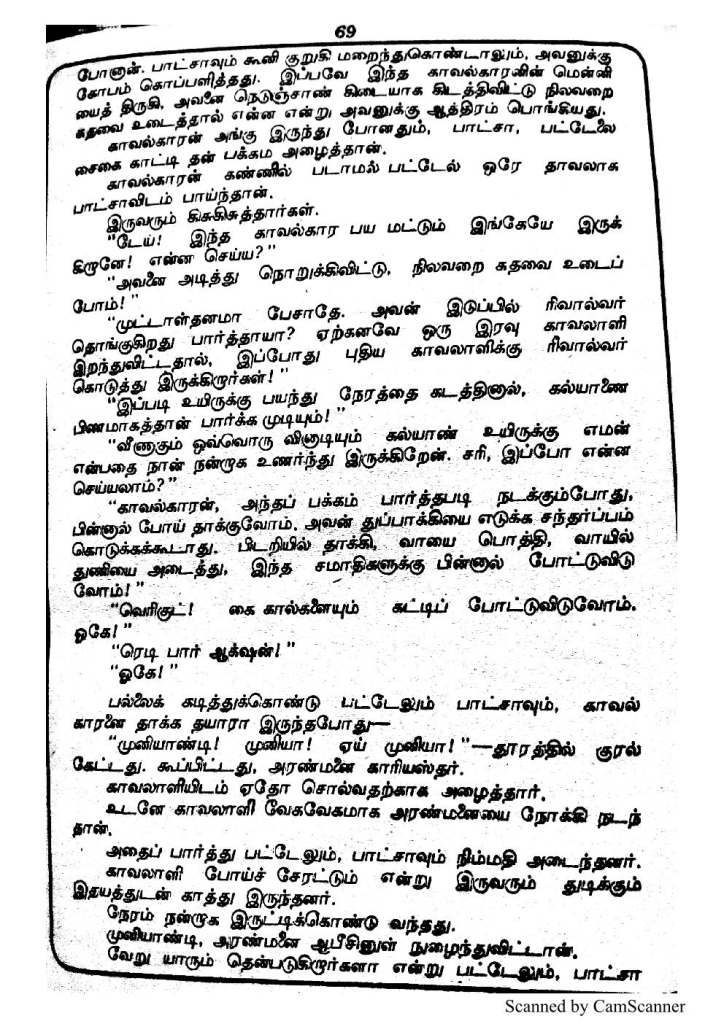 69
போனான். பாட்சாவும் கூனி குறுகி மறைந்துகொண்டாலும், அவனுக்கு
கோபம் கொப்பளித்தது. இப்பவே இந்த காவல்காரனின் மென்னி
யைத் திருகி, அவனை நெடுஞ்சாண் கிடையாக கிடத்திவிட்டு நிலவறை
கதவை உடைத்தால் என்ன என்று அவனுக்கு ஆத்திரம் பொங்கியது.
காவல்காரன் அங்கு இருந்து போனதும், பாட்சா, பட்டேலை
சைகை காட்டி தன் பக்கம அழைத்தான்.
காவல்காரன் கண்ணில் படாமல் பட்டேல் ஒரே தாவலாக
பாட்சாவிடம் பாய்ந்தான்.
இருவரும் கிசுகிசுத்தார்கள்.
"டேய்! இந்த காவல்கார பய மட்டும் இங்கேயே இருக்
கிறானே! என்ன செய்ய?"
"அவனை அடித்து நொறுக்கிவிட்டு, நிலவறை கதவை உடைப்
போம்!"
"முட்டாள்தனமா பேசாதே. அவன் இடுப்பில் ரிவால்வர்
தொங்குகிறது பார்த்தாயா? ஏற்கனவே ஒரு இரவு காவலாளி
இறந்துவிட்டதால், இப்போது புதிய காவலாளிக்கு ரிவால்வர்
கொடுத்து இருக்கிறார்கள்!"
"இப்படி உயிருக்கு பயந்து நேரத்தை கடத்தினால், கல்யாணை
பிணமாகத்தான் பார்க்க முடியும்!"
"வீணாகும் ஒவ்வொரு வினாடியும் கல்யாண் உயிருக்கு எமன்
என்பதை நான் நன்றாக உணர்ந்து இருக்கிறேன். சரி, இப்போ என்ன
செய்யலாம்?"
"காவல்காரன், அந்தப் பக்கம் பார்த்தபடி நடக்கும்போது,
பின்னால் போய் தாக்குவோம். அவன் துப்பாக்கியை எடுக்க சந்தர்ப்பம்
கொடுக்கக்கூடாது. பிடறியில் தாக்கி, வாயை பொத்தி, வாயில்
துணியை அடைத்து, இந்த சமாதிகளுக்கு பின்னால் போட்டுவிடு
வோம்!"
"வெரிகுட்! கை கால்களையும் கட்டிப் போட்டுவிடுவோம்.
ஓகே!"
"ரெடி பார் ஆக்‌ஷன்!"
"ஓகே!"
பல்லைக் கடித்துக்கொண்டு பட்டேலும் பாட்சாவும், காவல்
காரனை தாக்க தயாரா இருந்தபோது—
"முனியாண்டி! முனியா! ஏய் முனியா!"—தூரத்தில் குரல்
கேட்டது. கூப்பிட்டது, அரண்மனை காரியஸ்தர்.
காவலாளியிடம் ஏதோ சொல்வதற்காக அழைத்தார்.
உடனே காவலாளி வேகவேகமாக அரண்மனையை நோக்கி நடந்
தான்.
அதைப் பார்த்து பட்டேலும், பாட்சாவும் நிம்மதி அடைந்தனர்.
காவலாளி போய்ச் சேரட்டும் என்று இருவரும் துடிக்கும்
இதயத்துடன் காத்து இருந்தனர்.
நேரம் நன்றாக இருட்டிக்கொண்டு வந்தது.
முனியாண்டி, அரண்மனை ஆபீசினுள் நுழைந்துவிட்டான்.
வேறு யாரும் தென்படுகிறார்களா என்று பட்டேலும், பாட்சா
Scanned by CamScanner